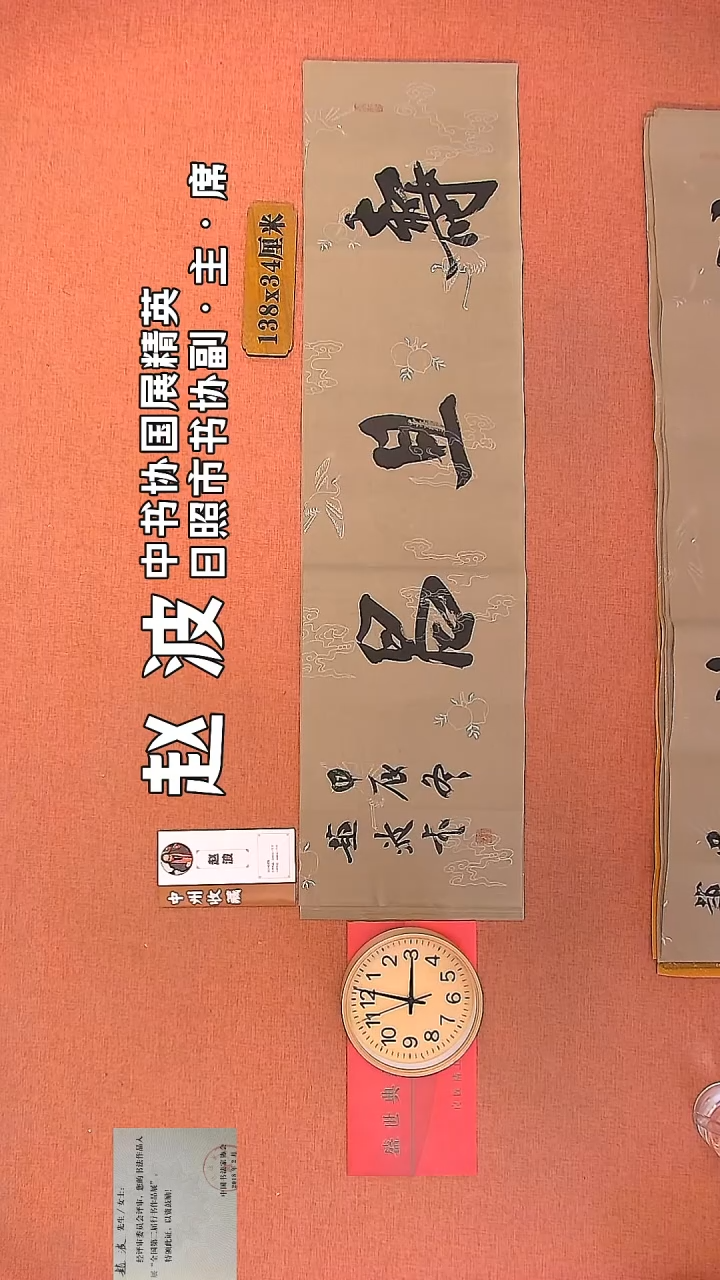 赵 波
中书协国展精英
日照市书协副·主·席
138x34厘米
赵波
中州收藏
壽且昌
甲辰冬
趙波书
盛世典
12
1
2
3
4
5
6
7
8
9
10
11
赵波 先生/女士:
经评审委员会评审,您的书法作品入
展“全国第二届行书作品展”。
特颁此证,以资鼓励!
中国书法家协会